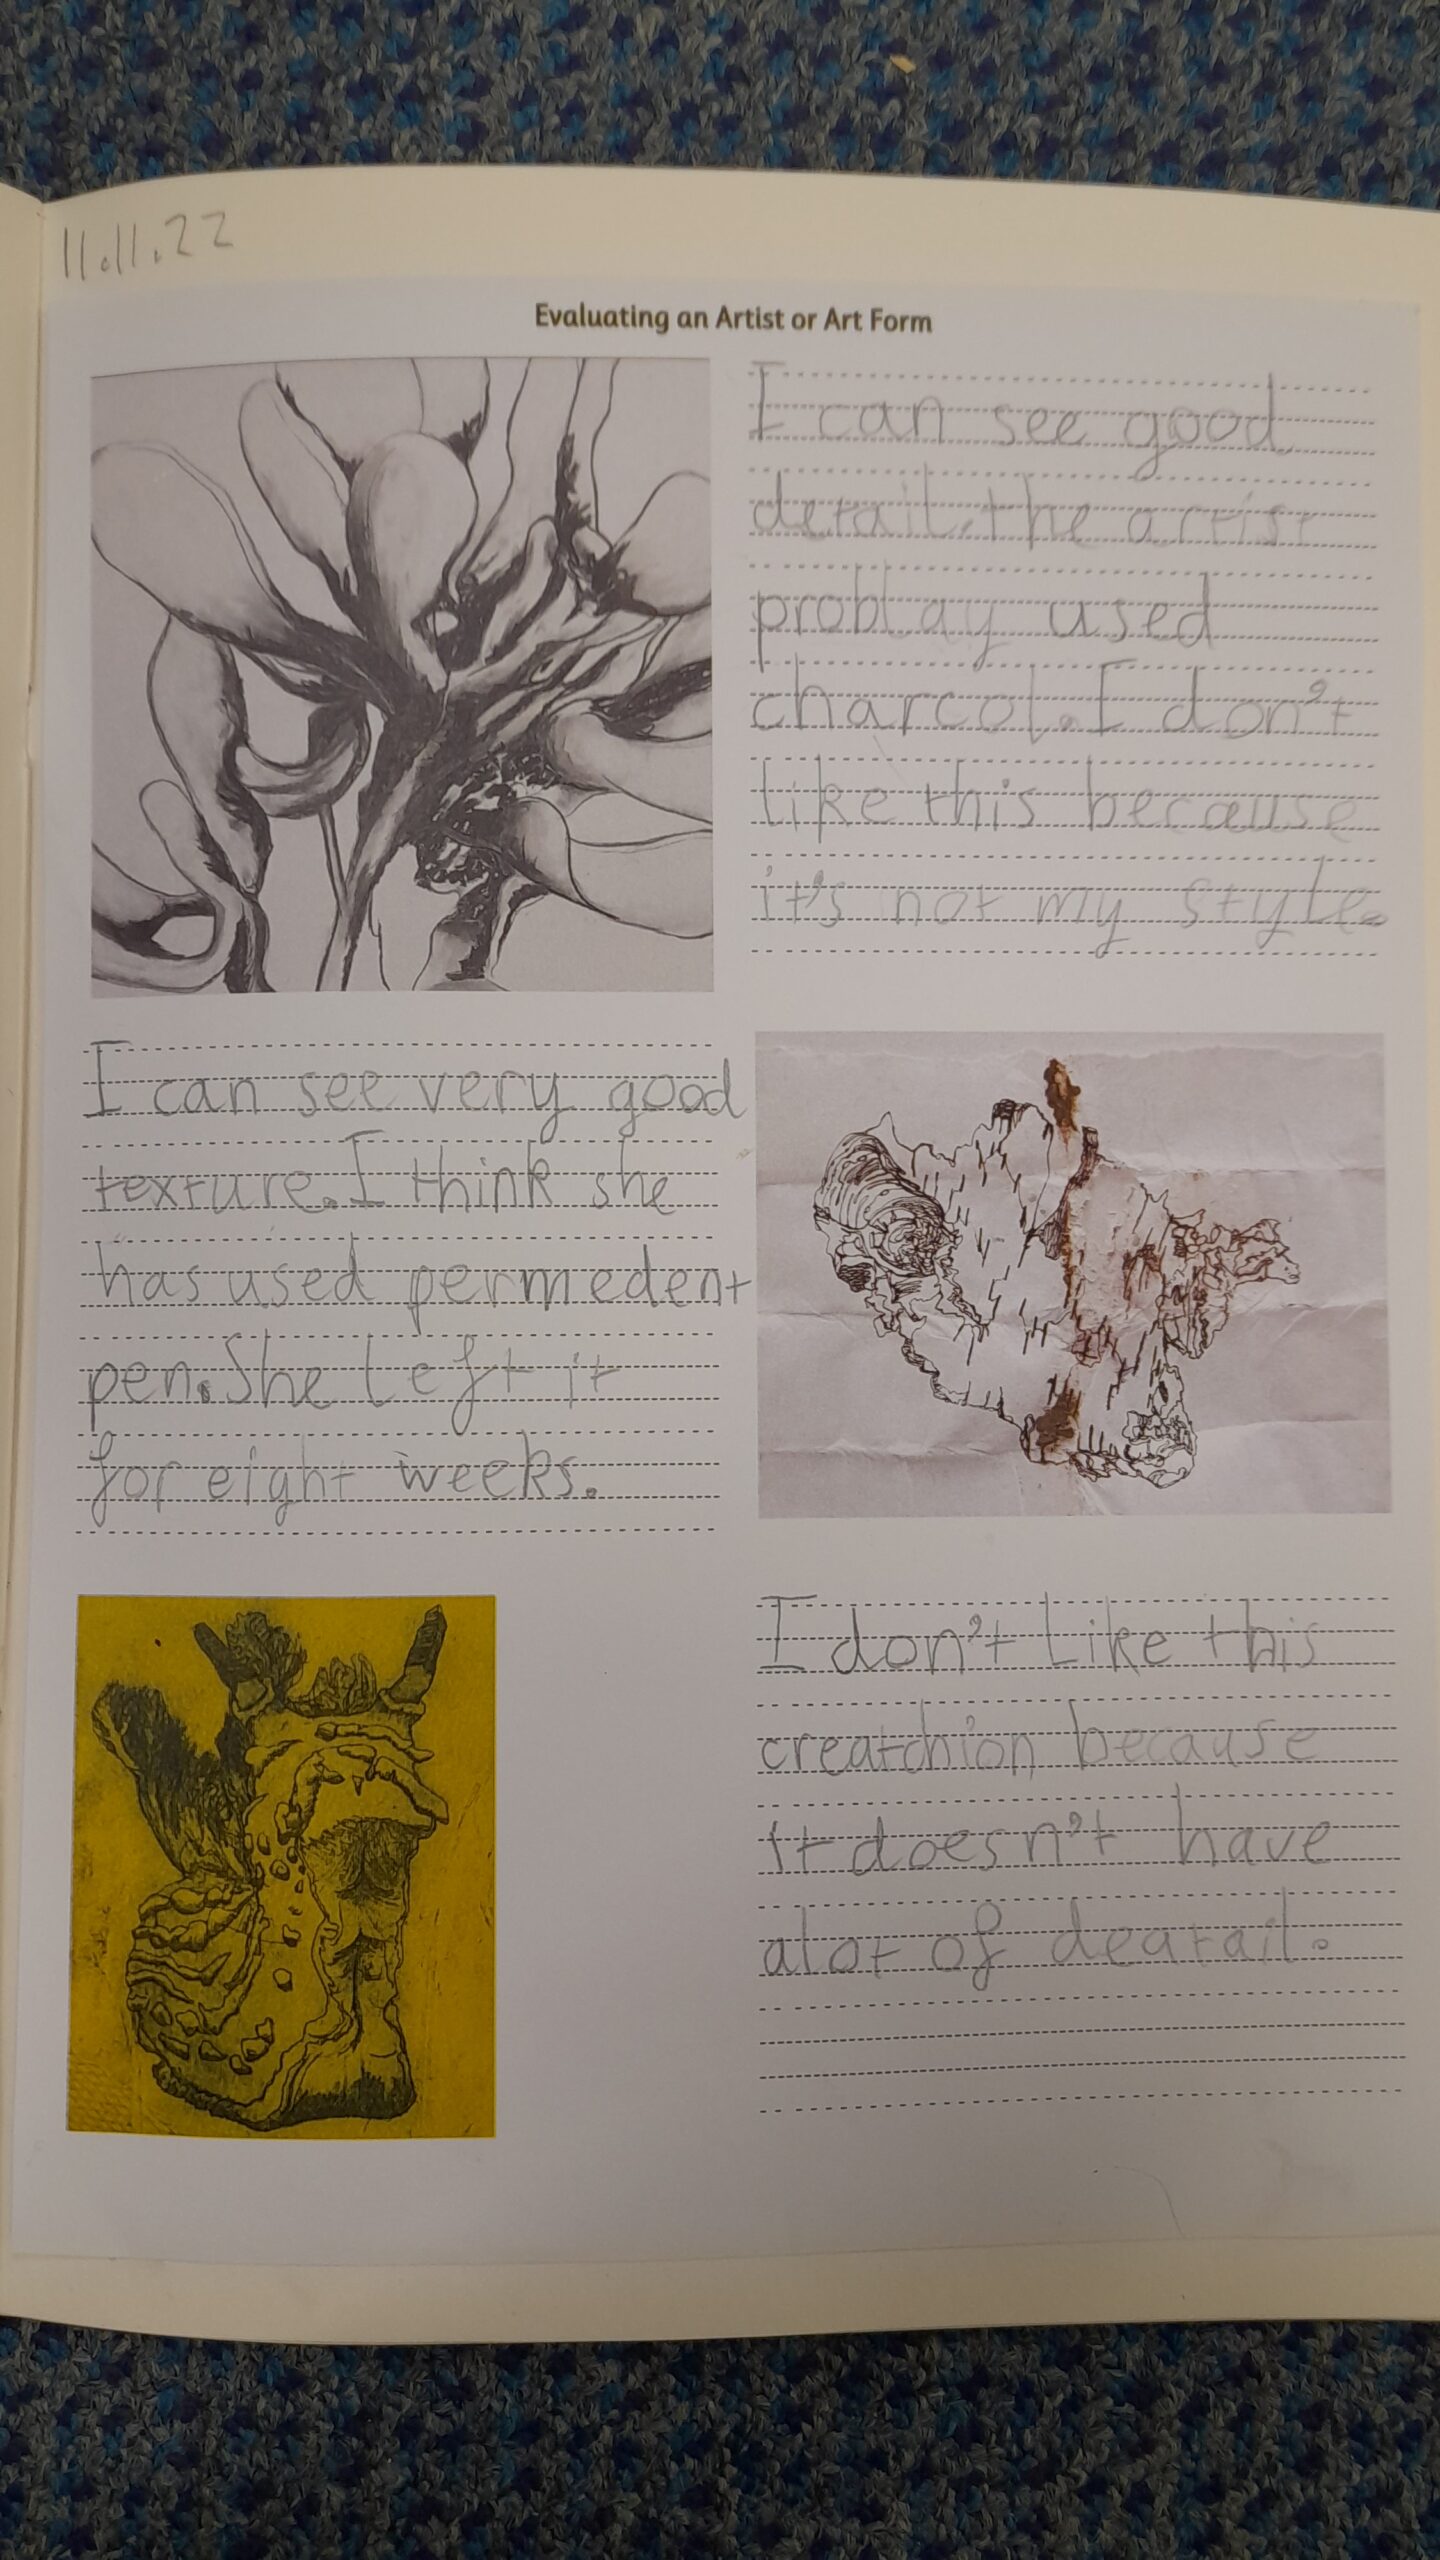 11.11.22
Evaluating an Artist or Art Form
I can see good
detail. the artist
problay used
charcol. I don't
like this because
it's not my style.
I can see very good
texture. I think she
has used permedent
pen. She left it
for eight weeks.
I don't like this
creatchion because
it doesn't have
alot of deatail.